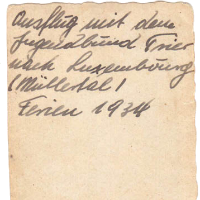 Ausflug mit dem
Jugendbund Trier
nach Luxembourg
(Müllertal)
Ferien 1934